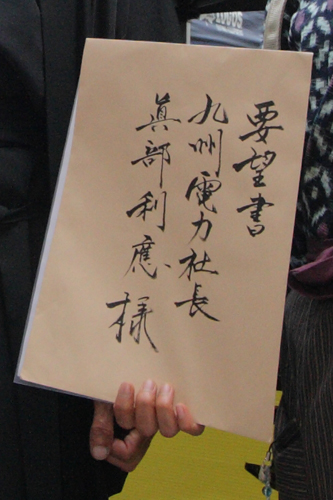 要望書
九州電力社長
眞部利應様